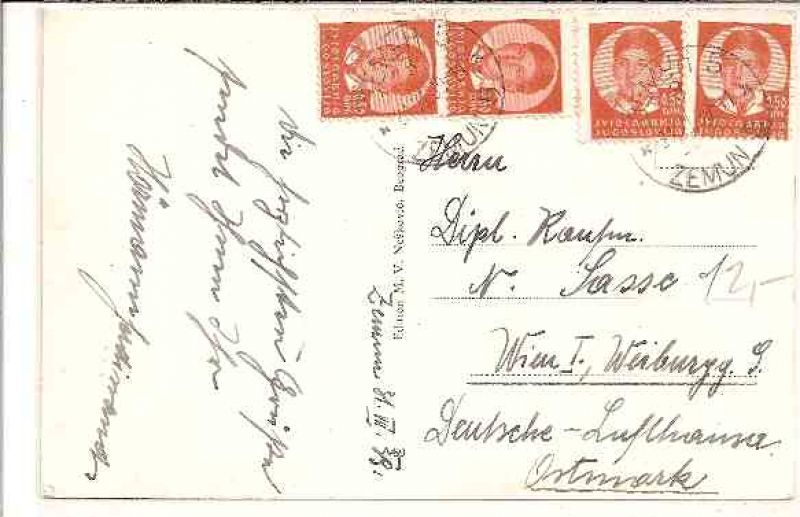 Die herzlichsten Grüße
sendet Ihnen Ihr
Zemun 21. VII. 39.
Edition M. V. Nešković, Beograd
ЈУГОСЛАВИЈА
JUGOSLAVIJA
ЈУГОСЛАВИЈА
JUGOSLAVIJA
ZEMUN
ZEMUN
Herrn
Dipl. Kaufm.
N. Sasse
12,-
Wien I., Weiburgg. 9.
Deutsche-Lufthansa
Ostmark